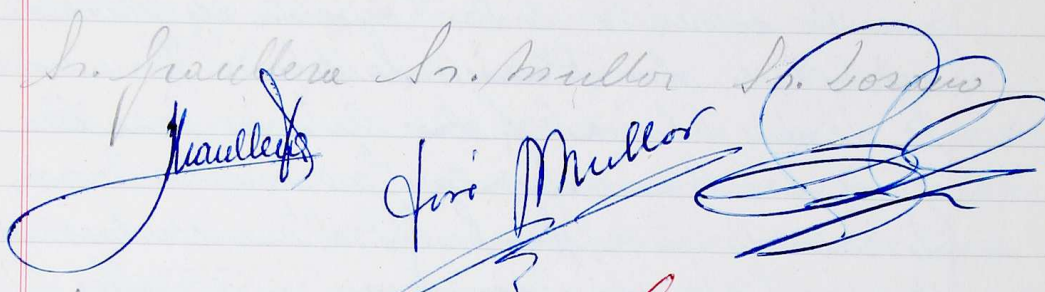 Sr. Granllera Sr. Mullor Sr. Lozano
Granllera José Mullor